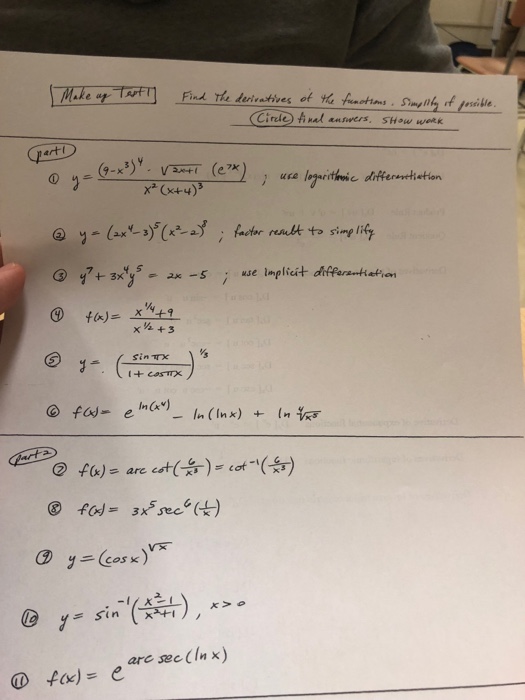 Make up Test 1
Find the derivatives of the functions. Simplify if possible.
Circle final answers. SHOW WORK
part 1
① y = (9-x³)⁴ · √2x+1 (e⁷ˣ) / x² (x+4)³ ; use logarithmic differentiation
② y = (2x⁴-3)⁵(x²-2)⁸ ; factor result to simplify
③ y⁷ + 3x⁴y⁵ = 2x - 5 ; use implicit differentiation
④ f(x) = x^1/4 + 9 / x^1/2 + 3
⑤ y = (sin πx / 1 + cos πx)^1/3
⑥ f(x) = e^ln(x⁴) - ln(ln x) + ln ∜x⁵
part 2
⑦ f(x) = arc cot(6/x³) = cot⁻¹(6/x³)
⑧ f(x) = 3x⁵ sec⁶(1/x)
⑨ y = (cos x)^√x
⑩ y = sin⁻¹(x²-1 / x²+1), x > 0
⑪ f(x) = e^arc sec(ln x)